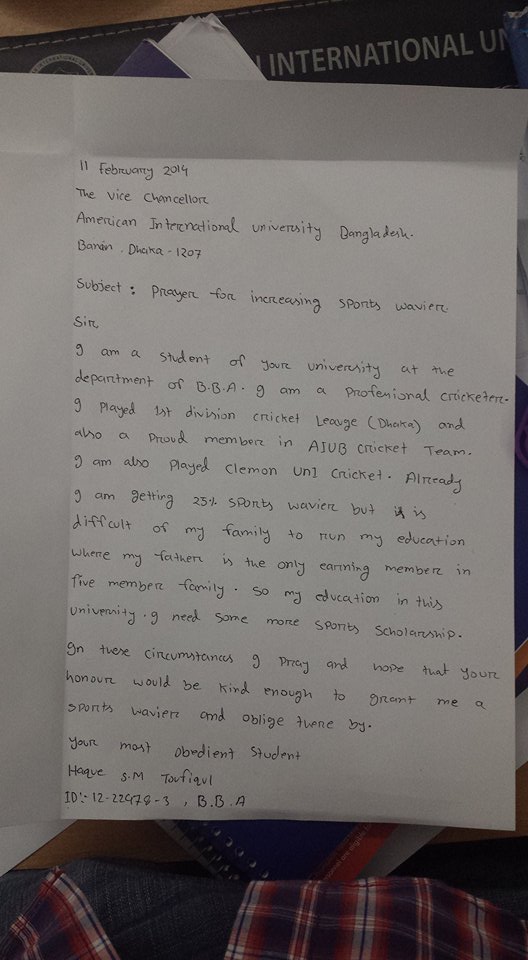 INTERNATIONAL UN
11 February 2014
The Vice Chancellor
American International university Bangladesh.
Banani. Dhaka-1207
Subject: Prayer for increasing sports wavier.
Sir,
I am a student of your university at the
department of B.B.A. I am a Profenional cricketer.
I played 1st division cricket Leauge (Dhaka) and
also a Proud member in AIUB Cricket Team.
I am also Played Clemon UnI Cricket. Already
I am getting 25% sports wavier but is
difficult of my family to run my education
where my father is the only earning member in
five member family. So my education in this
university. I need some more sports Scholarship.
In these circumstances I Pray and hope that your
honour would be kind enough to grant me a
sports wavier and oblige there by.
Your most obedient Student
Haque S.M Toufiqul
ID:-12-22478-3, B.B.A